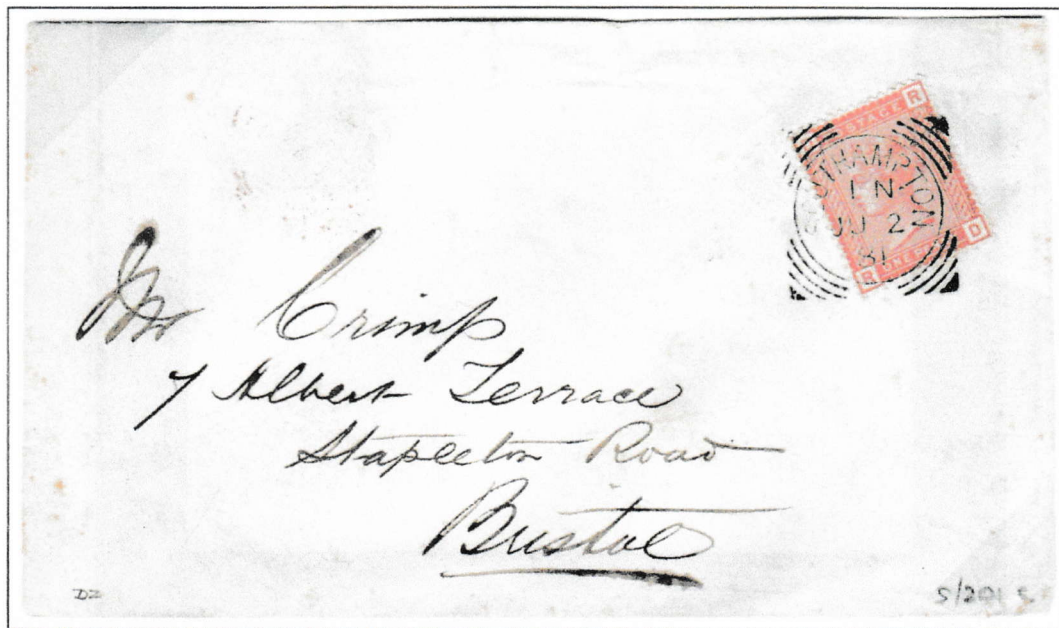 POSTAGE R
SOUTHAMPTON
JU 2
81
D
R
Mr Crimp
7 Albert Terrace
Stapleton Road
Bristol
DZ